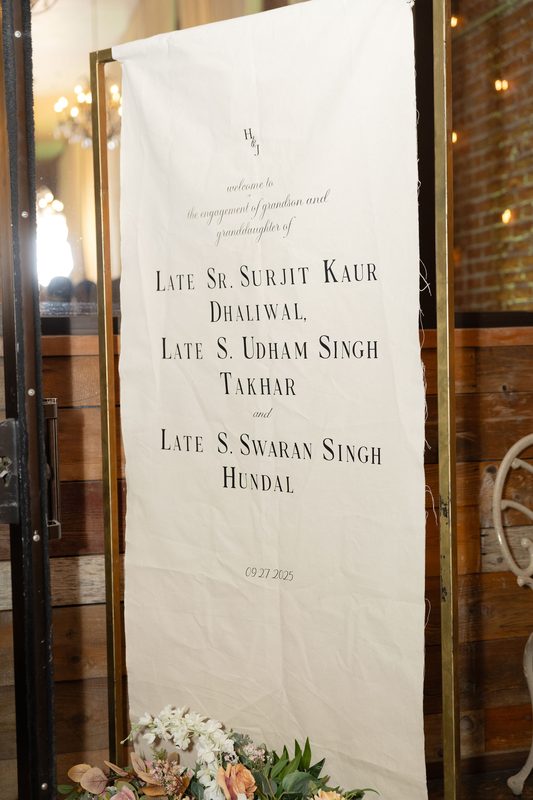 H
&
J
welcome to
the engagement of grandson and
granddaughter of
LATE SR. SURJIT KAUR
DHALIWAL,
LATE S. UDHAM SINGH
TAKHAR
and
LATE S. SWARAN SINGH
HUNDAL
09.27.2025